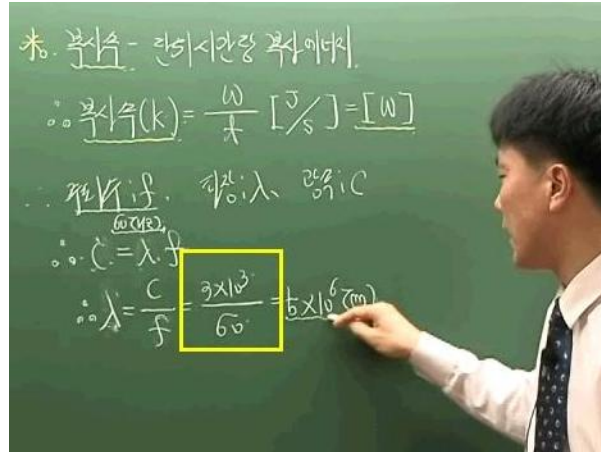 ※. 복사속 - 단위시간당 복사에너지
∴ 복사속(k) = W/t [J/s] = [W]
∴ 주파수 : f. 파장 : λ. 광속 : C
60(Hz)
∴ C = λ. f
∴ λ = C/f = 3×10³/60 = 5×10⁶ (m)